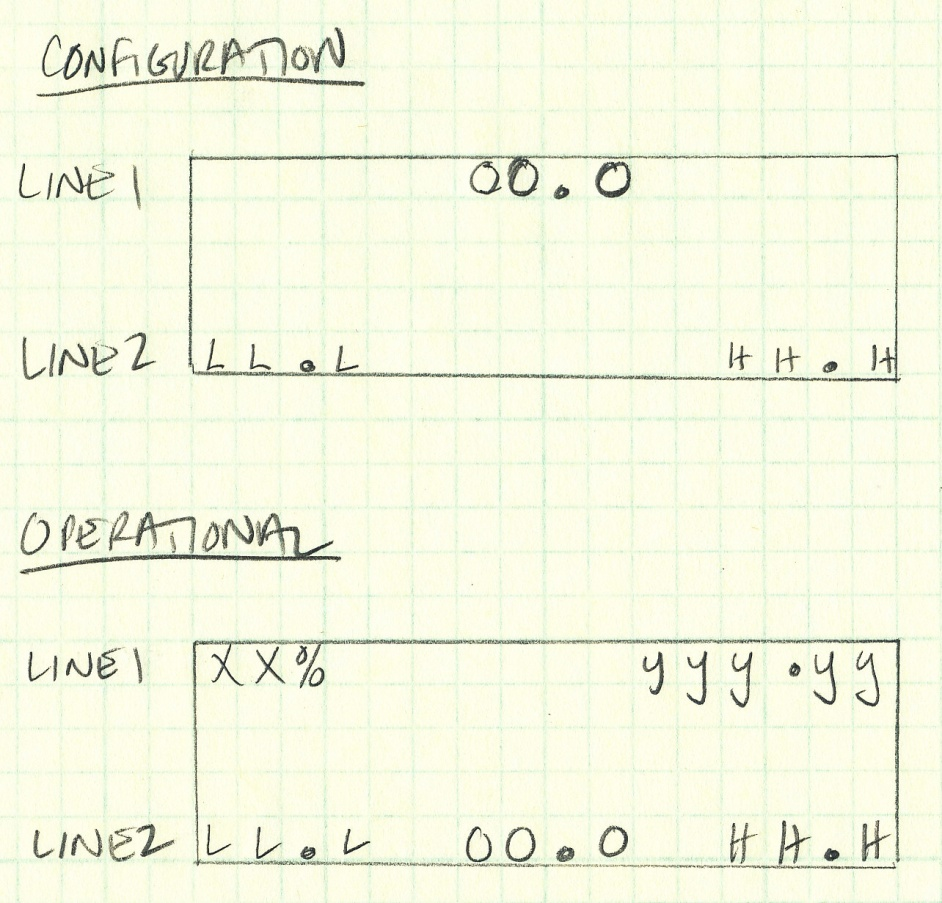 CONFIGURATION
LINE 1 00.0
LINE 2 LL.L HH.H
OPERATIONAL
LINE 1 XX% yyy.yy
LINE 2 LL.L 00.0 HH.H